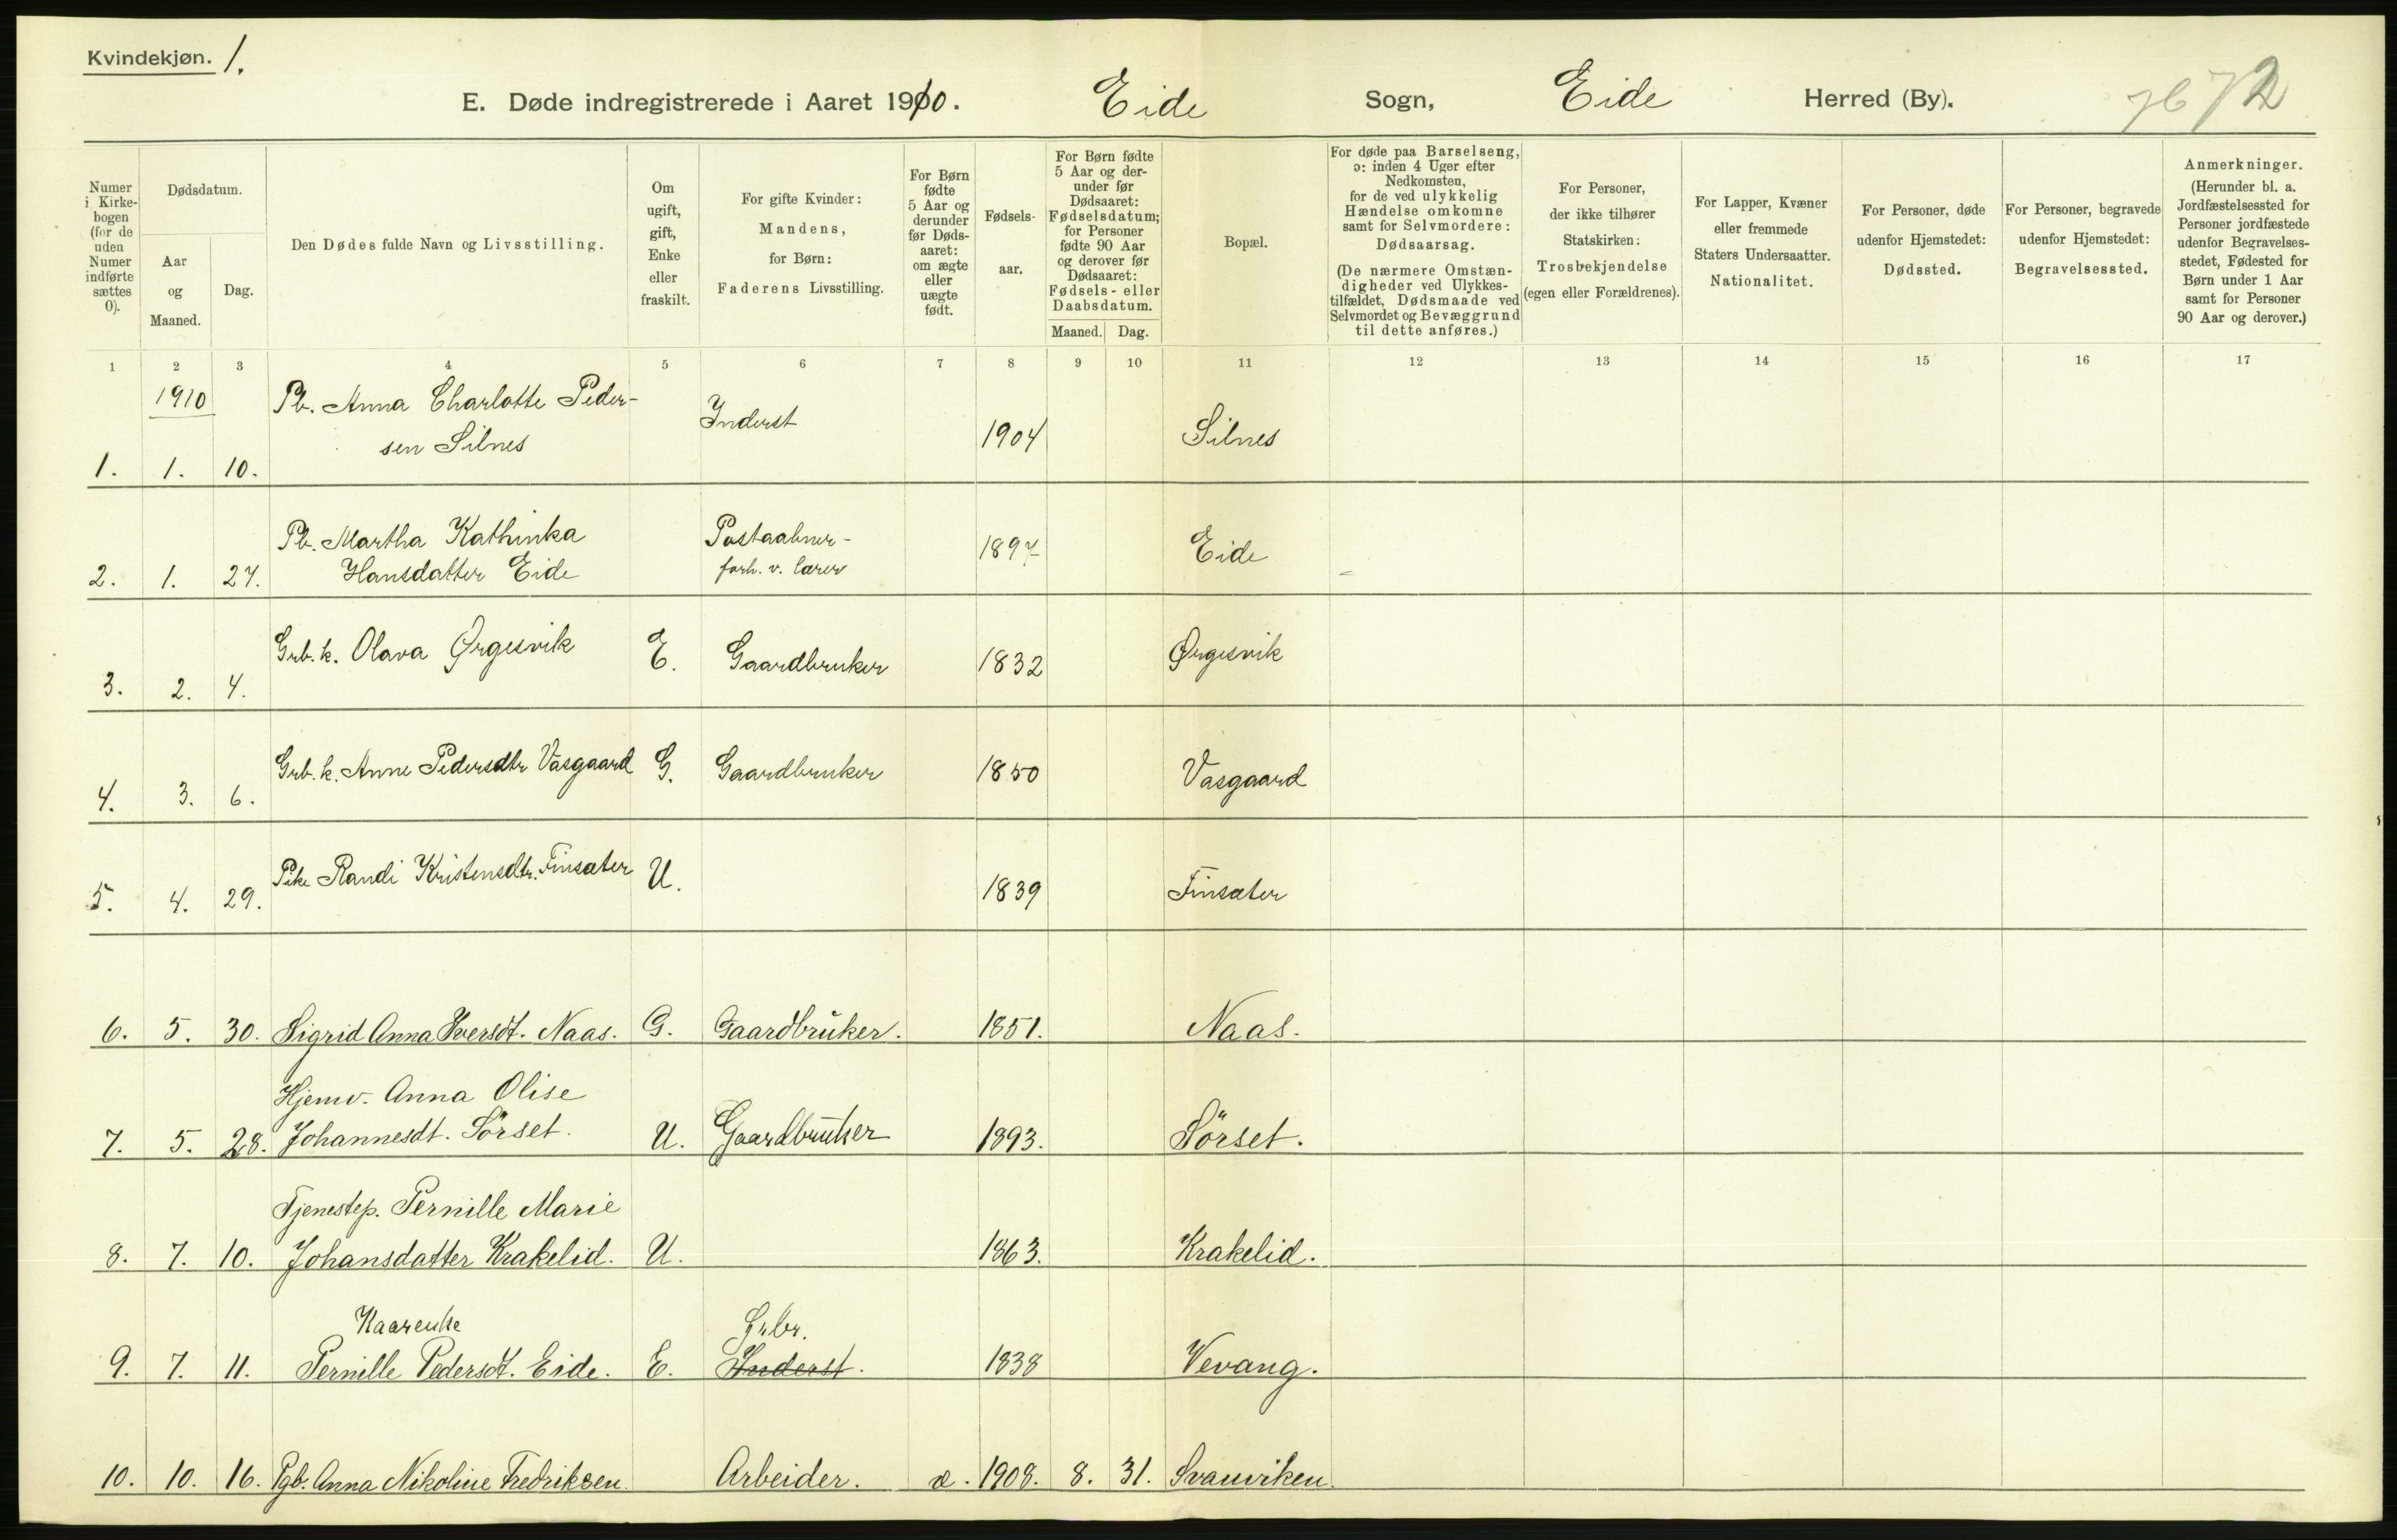 Kvindekjøn. 1.
E. Døde indregistrerede i Aaret 1910. Eide Sogn, Eide Herred (By). 76 72
Numer
i Kirke-
bogen
(for de
uden
Numer
indførte
sættes
0).
Dødsdatum.
Aar
og
Maaned.
Dag.
Den Dødes fulde Navn og Livsstilling.
Om
ugift,
gift,
Enke
eller
fraskilt.
For gifte Kvinder:
Mandens,
for Børn:
Faderens Livsstilling.
For Børn
fødte
5 Aar og
derunder
før Døds-
aaret:
om ægte
eller
uægte
født.
Fødsels-
aar.
For Børn fødte
5 Aar og der-
under før
Dødsaaret:
Fødselsdatum;
for Personer
fødte 90 Aar
og derover før
Dødsaaret:
Fødsels- eller
Daabsdatum.
Maaned. Dag.
Bopæl.
For døde paa Barselseng,
ɔ: inden 4 Uger efter
Nedkomsten,
for de ved ulykkelig
Hændelse omkomne
samt for Selvmordere:
Dødsaarsag.
(De nærmere Omstæn-
digheder ved Ulykkes-
tilfældet, Dødsmaade ved
Selvmordet og Bevæggrund
til dette anføres.)
For Personer,
der ikke tilhører
Statskirken:
Trosbekjendelse
(egen eller Forældrenes).
For Lapper, Kvæner
eller fremmede
Staters Undersaatter.
Nationalitet.
For Personer, døde
udenfor Hjemstedet:
Dødssted.
For Personer, begravede
udenfor Hjemstedet:
Begravelsessted.
Anmerkninger.
(Herunder bl. a.
Jordfæstelsessted for
Personer jordfæstede
udenfor Begravelses-
stedet, Fødested for
Børn under 1 Aar
samt for Personer
90 Aar og derover.)
1 2 3 4 5 6 7 8 9 10 11 12 13 14 15 16 17
1910 Pb. Anna Charlotte Peder-
1. 1. 10. sen Silnes Inderst 1904 Silnes
Pb. Martha Kathinka Postaabner-
2. 1. 27. Hansdatter Eide forh. v. lærer 1897 Eide
3. 2. 4. Grb. k. Olava Ørgesvik E. Gaardbruker 1832 Ørgesvik
4. 3. 6. Grb. k. Anne Pedersdtr Vasgaard G. Gaardbruker 1850 Vasgaard
5. 4. 29. Pike Randi Kristensdtr. Finsæter U. 1839 Finsæter
6. 5. 30. Sigrid Anna Iversdt. Naas. G. Gaardbruker. 1851. Naas.
Hjemv. Anna Olise
7. 5. 28. Johannesdt. Sörset. U. Gaardbruker 1893. Sörset.
Tjenestep. Pernille Marie
8. 7. 10. Johansdatter Krakelid. U. 1863. Krakelid.
Kaarenke Grbr.
9. 7. 11. Pernille Pedersdt. Eide. E. Inderst. 1838 Vevang.
10. 10. 16. Pgb. Anna Nikoline Fredriksen. Arbeider. æ. 1908. 8. 31. Svanviken.